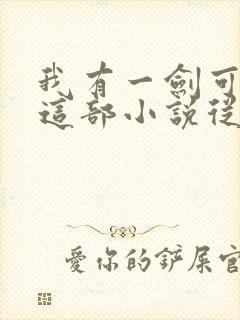 我有一劍可
這部小說從
愛你的鏟屎官